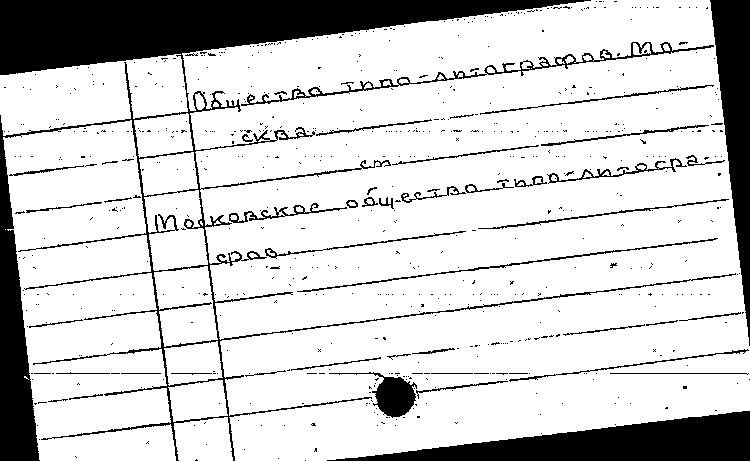 Общество типо-литографов. Мо-
сква.
см.
Московское общество типо-литогра-
фов.